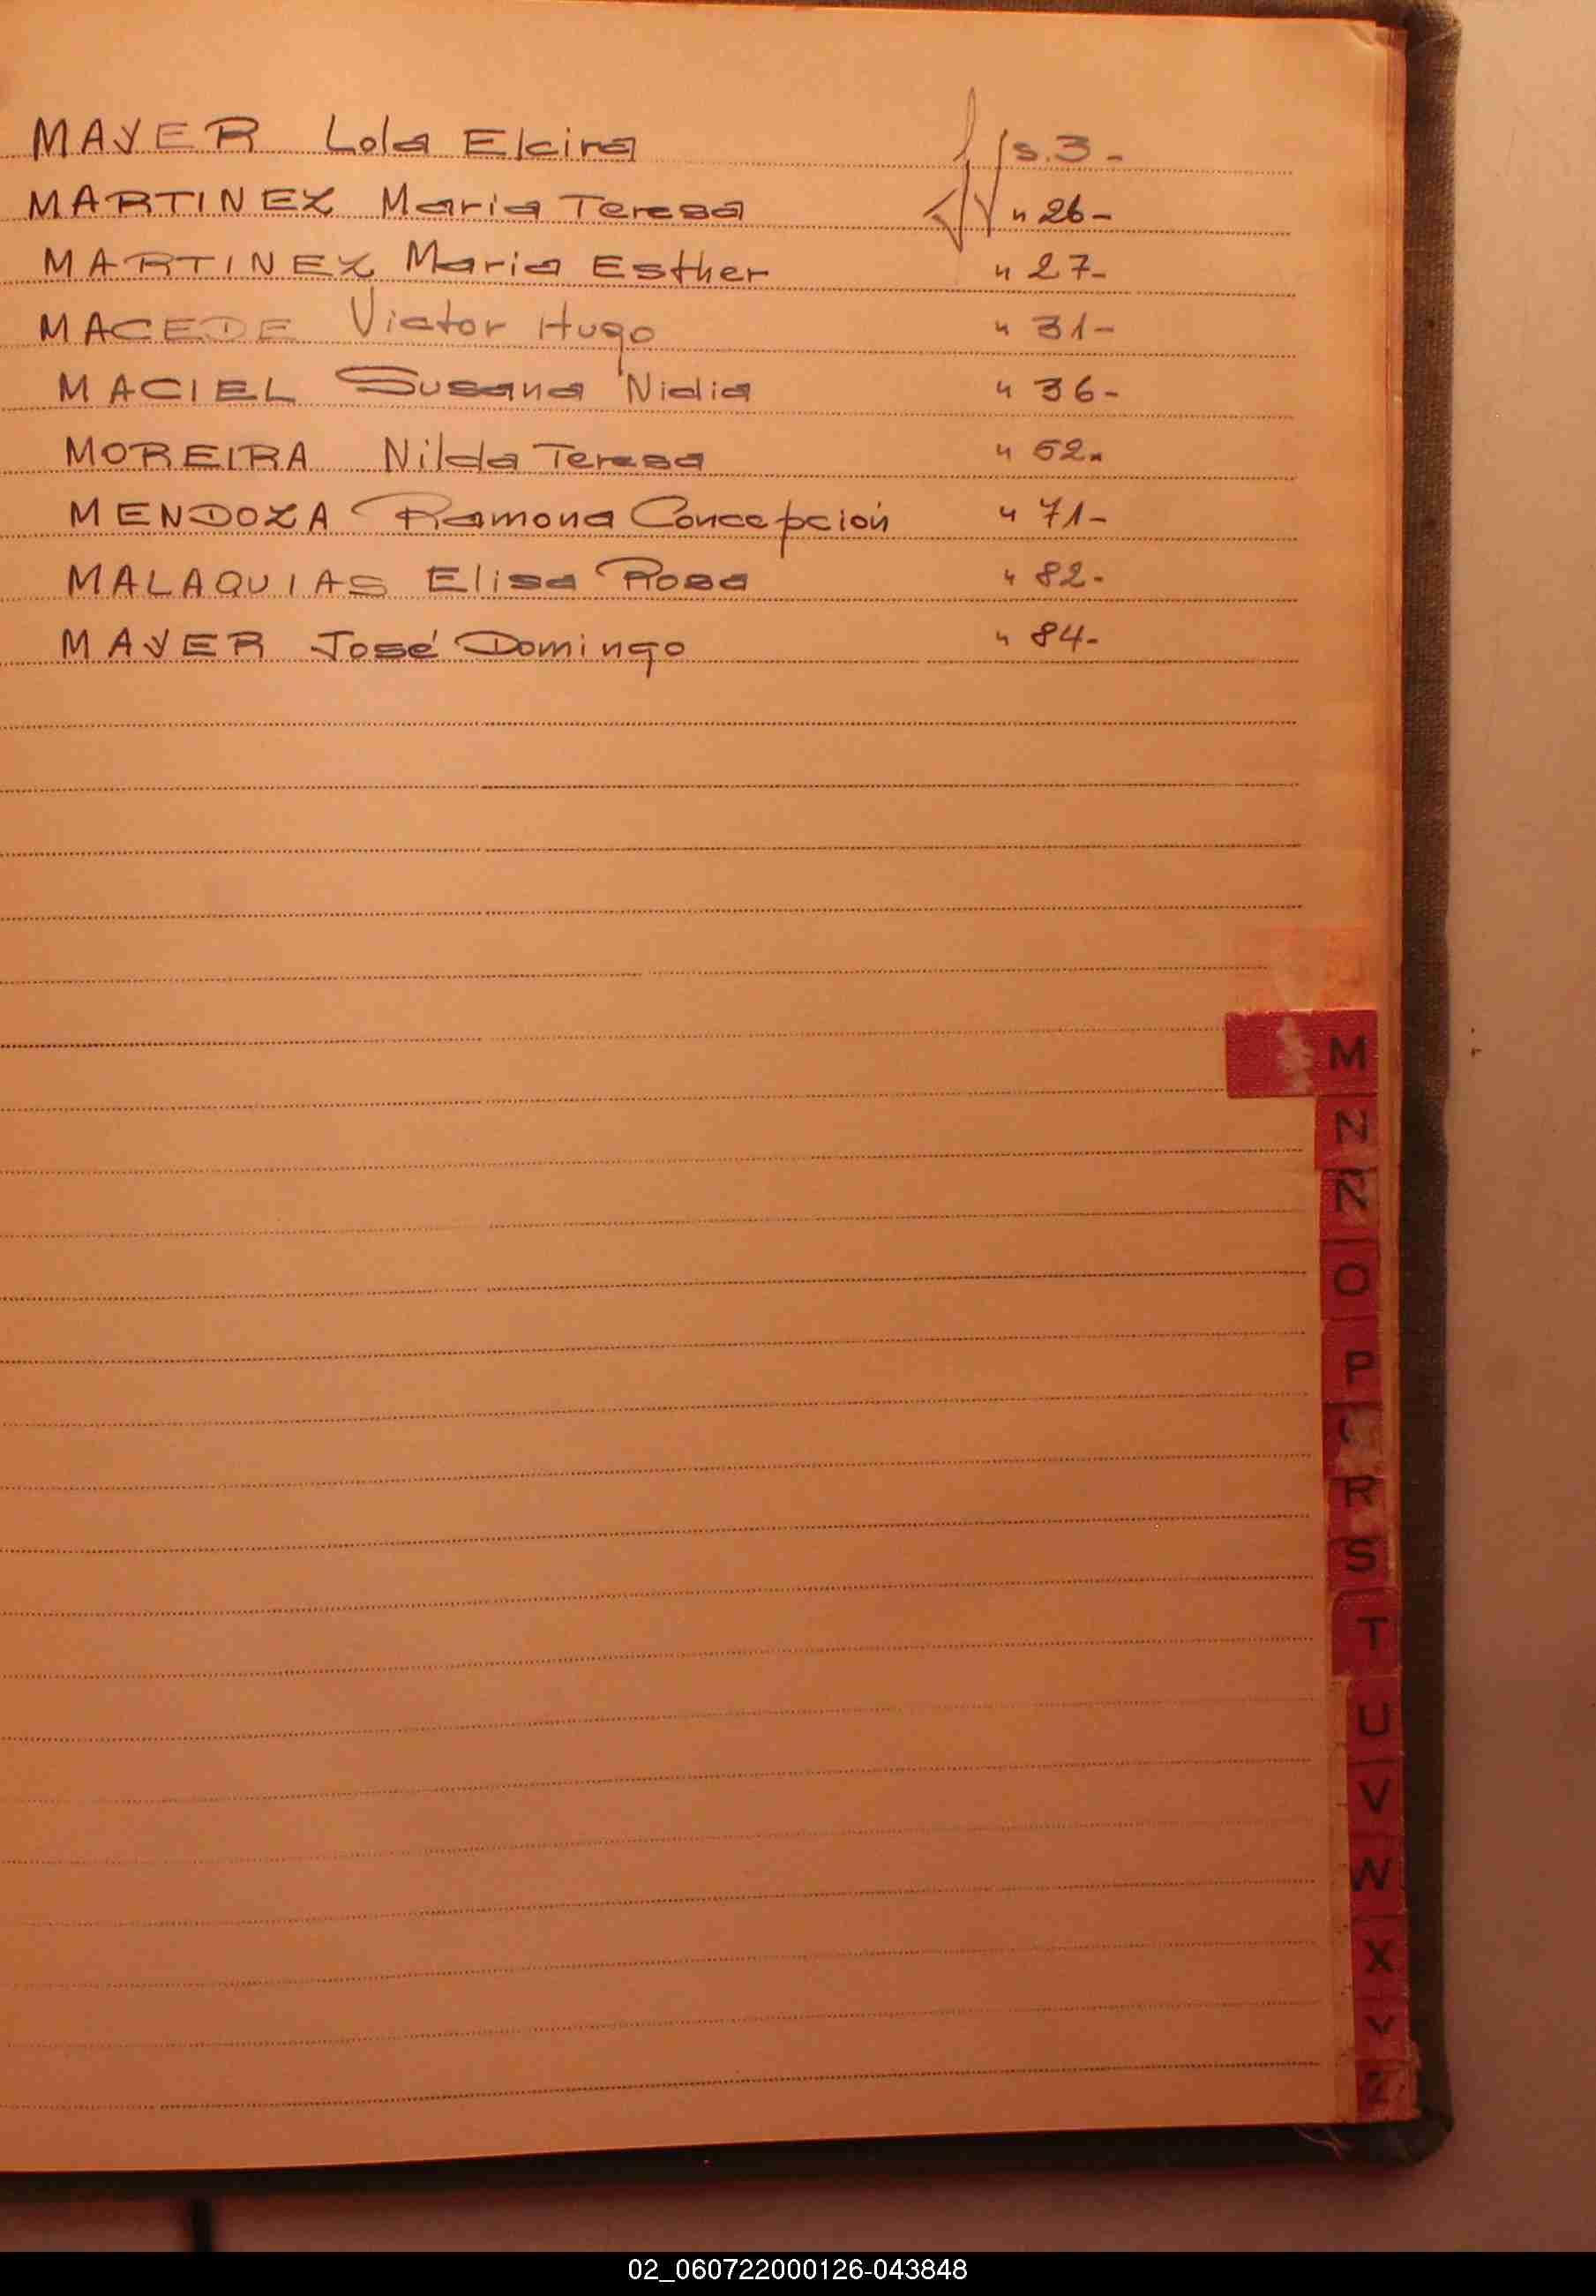 MAYER Lola Elcira fs. 3-
MARTINEZ Maria Teresa " 26-
MARTINEZ Maria Esther " 27-
MACEDE Victor Hugo " 31-
MACIEL Susana Nidia " 36-
MOREIRA Nilda Teresa " 52-
MENDOZA Ramona Concepción " 71-
MALAQUIAS Elisa Rosa " 82-
MAYER José Domingo " 84-
M
N
Ñ
O
P
R
S
T
U
V
W
X
Y
Z
02_060722000126-043848